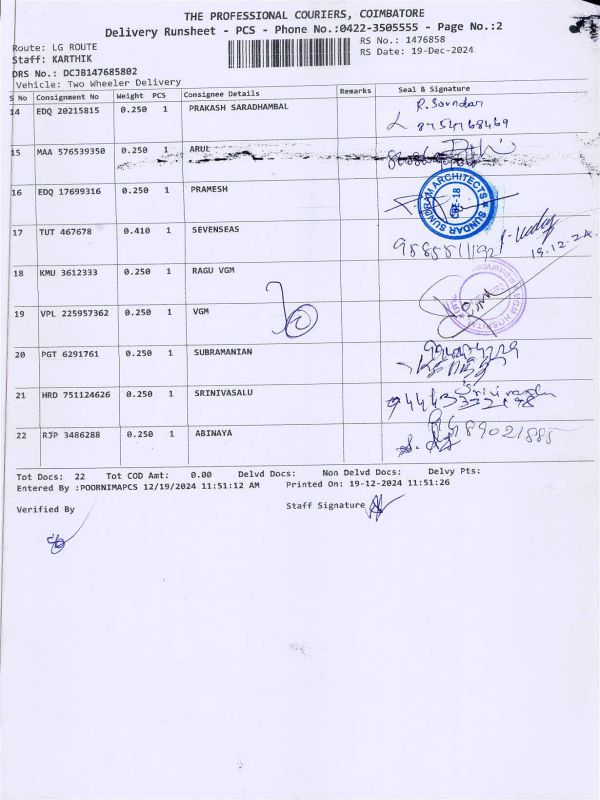 THE PROFESSIONAL COURIERS, COIMBATORE
Delivery Runsheet - PCS - Phone No.:0422-3505555 - Page No.:2
Route: LG ROUTE
RS No.: 1476858
Staff: KARTHIK
RS Date: 19-Dec-2024
DRS No.: DCJB147685802
Vehicle: Two Wheeler Delivery
S No Consignment No Weight PCS Consignee Details Remarks Seal & Signature
14 EDQ 20215815 0.250 1 PRAKASH SARADHAMBAL R. Soundar
8754168469
15 MAA 576539350 0.250 1 ARUL
16 EDQ 17699316 0.250 1 PRAMESH
SUNDAR SUNDRAM ARCHITECTS
CBE-18
17 TUT 467678 0.410 1 SEVENSEAS
19.12.24
18 KMU 3612333 0.250 1 RAGU VGM
VGM HOSPITAL
19 VPL 225957362 0.250 1 VGM
20 PGT 6291761 0.250 1 SUBRAMANIAN
21 HRD 751124626 0.250 1 SRINIVASALU
22 RJP 3486288 0.250 1 ABINAYA
Tot Docs: 22 Tot COD Amt: 0.00 Delvd Docs: Non Delvd Docs: Delvy Pts:
Entered By :POORNIMAPCS 12/19/2024 11:51:12 AM Printed On: 19-12-2024 11:51:26
Verified By
Staff Signature